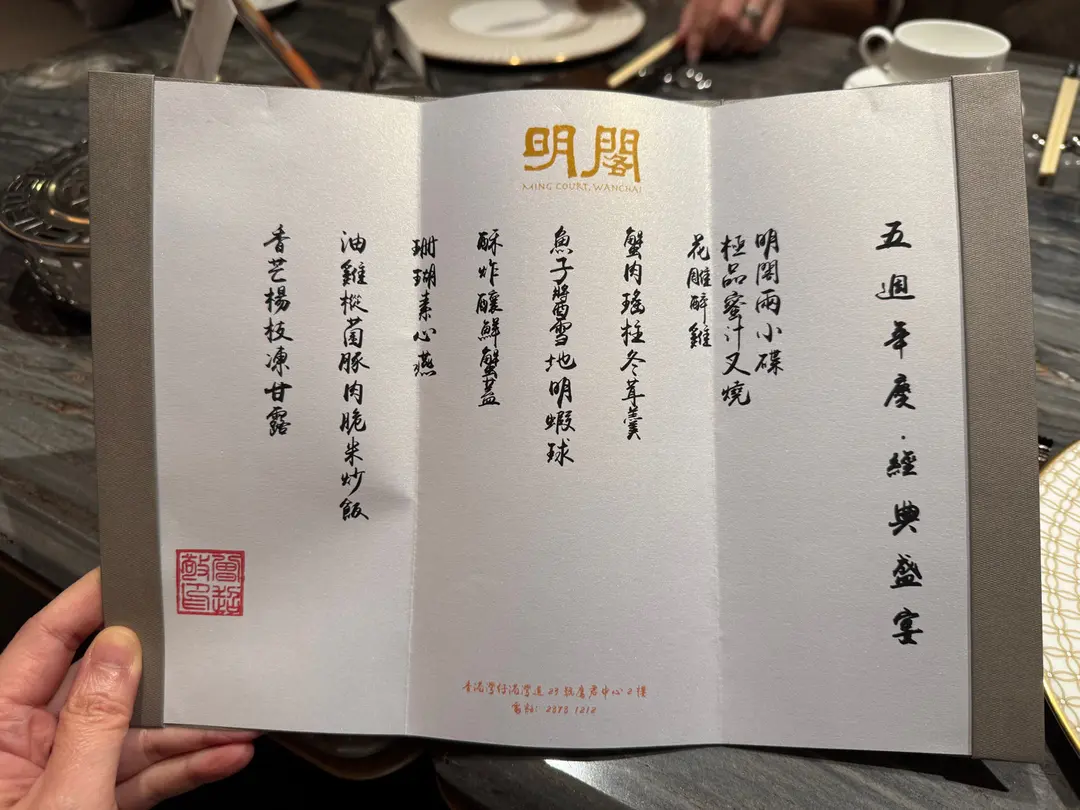 明閣
MING COURT, WANCHAI
五週年度·經典盛宴
明閣兩小碟
極品蜜汁叉燒
花雕醉雞
蟹肉瑤柱冬茸羹
魚子醬雪地明蝦球
酥炸釀鮮蟹蓋
珊瑚素心燕
油雞樅菌豚肉脆米炒飯
香芒楊枝凍甘露
香港灣仔港灣道23號鷹君中心2樓
電話: 2878 1212